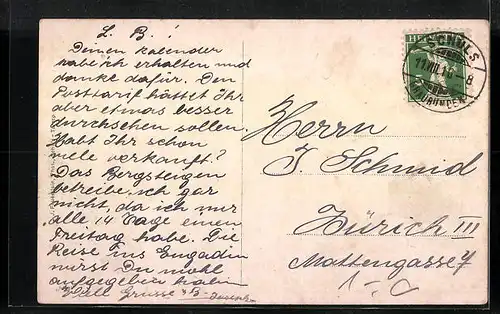 L. B. !
Deinen Kalender
habe ich erhalten und
danke dafür. Den
Posttarif hättet Ihr
aber etwas besser
durchsehen sollen.
Habt Ihr schon
viele verkauft?
Das Bergsteigen
betreibe ich gar
nicht, da ich nur
alle 14 Tage einen
Freitag habe. Die
Reise ins Engadin
wirst Du wohl
aufgegeben haben
Viele Grüsse
HELVETIA
SCHULS
11.VIII.16 - 8
Herrn
J. Schmid
Zürich III
Mattengasse 7